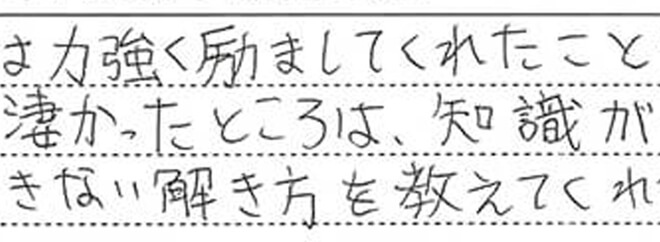 は力強く励ましてくれたこと
凄かったところは、知識が
きない解き方を教えてくれ